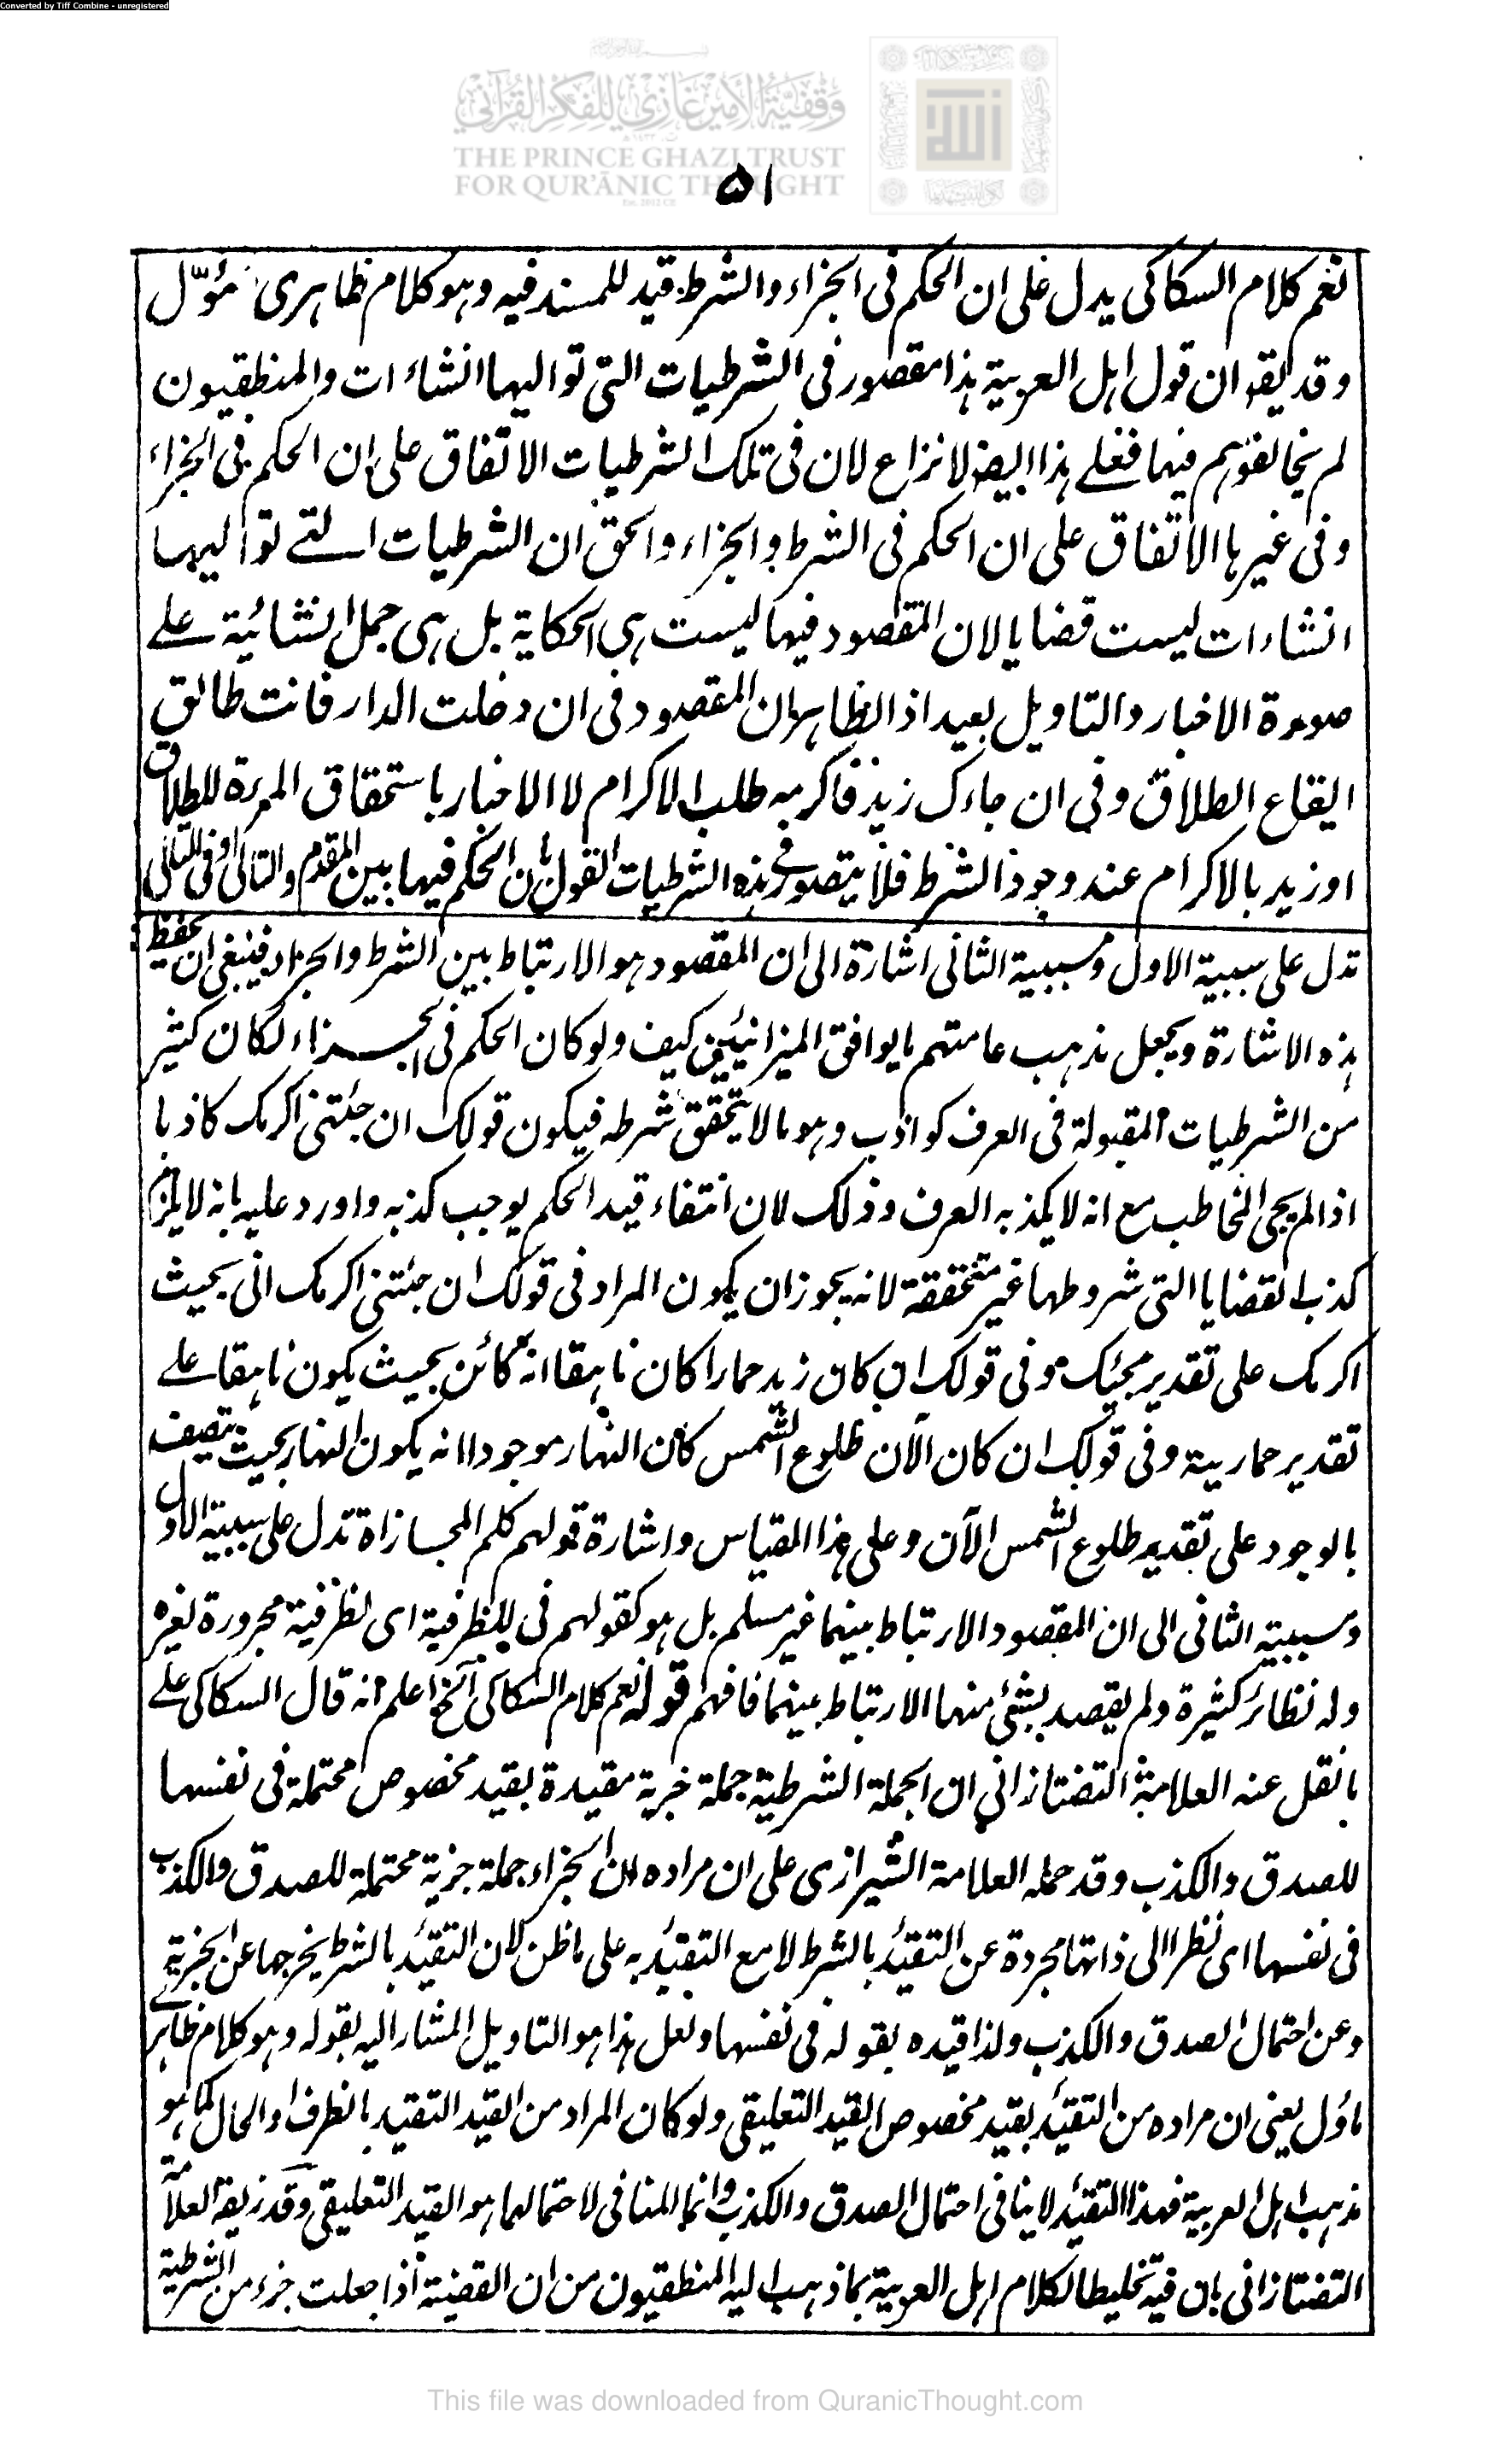 Converted by Tiff Combine - unregistered
وقفية الأمير غازي للفكر القرآني
THE PRINCE GHAZI TRUST
FOR QUR'ĀNIC THOUGHT
۵۱
نعم كلام السكاكى يدل على ان الحكم فى الجزاء والشرط قيد للمسند فيه وهو كلام ظاهرى مؤوّل
وقد يقو ان قول اهل العربية هذا مقصور فى الشرطيات التى تواليها انشاءات والمنطقيون
لم يخالفوهم فيها فعلے هذا ايضا لا نزاع لان فى تلك الشرطيات الاتفاق على ان الحكم فى الجزاء
وفى غيرها الاتفاق على ان الحكم فى الشرط والجزاء والحق ان الشرطيات التے تواليها
انشاءات ليست قضايا لان المقصود فيها ليست هى الحكاية بل هى جمل انشائية علے
صورة الاخبار والتاويل بعيد اذ الظاهر ان المقصود فى ان دخلت الدار فانت طالق
ايقاع الطلاق وفى ان جاءك زيد فاكرمه طلب الاكرام لا الاخبار باستحقاق المرءة للطلاق
او زيد بالاكرام عند وجود الشرط فلا يتصور فے هذه الشرطيات القول بان الحكم فيها بين المقدم والتالى او فى التالى
تدل على سببية الاول ومسببية الثانى اشارة الى ان المقصود هو الارتباط بين الشرط والجزاء فينبغى ان يحفظ
هذه الاشارة ويجعل مذهب عامتهم ما يوافق الميزانيين كيف ولو كان الحكم فى الجزاء لكان كثير
من الشرطيات المقبولة فى العرف كواذب وهو ما لا يتحقق شرطه فيكون قولك ان جئتنى اكرمك كاذبا
اذا لم يجئ المخاطب مع انه لا يكذبه العرف وذلك لان انتفاء قيد الحكم يوجب كذبه واورد عليه بانه لا يلزم
كذب القضايا التى شروطها غير متحققة لانه يجوز ان يكون المراد فى قولك ان جئتنى اكرمك انى بحيث
اكرمك على تقدير مجيئك وفى قولك ان كان زيد حمارا كان ناهقا انه كائن بحيث يكون ناهقا علے
تقدير حماريته وفى قولك ان كان الآن طلوع الشمس كان النهار موجودا انه يكون النهار بحيث يتصف
بالوجود على تقدير طلوع الشمس الآن وعلى هذا القياس واشارة قولهم كلم المجازاة تدل على سببية الاول
ومسببية الثانى الى ان المقصود الارتباط بينهما غير مسلم بل هو كقولهم فى للظرفية اى لظرفية مجرورة لغيره
وله نظائر كثيرة ولم يقصد بشئ منها الارتباط بينهما فافهم قوله نعم كلام السكاكى آلخ اعلم انه قال السكاكى علے
ما نقل عنه العلامة التفتازانى ان الجملة الشرطية جملة خبرية مقيدة بقيد مخصوص محتملة فى نفسها
للصدق والكذب وقد حمله العلامة الشيرازى على ان مراده ان الجزاء جملة خبرية محتملة للصدق والكذب
فى نفسها اى نظرا الى ذاتها مجردة عن التقيّد بالشرط لا مع التقيّد به على ما ظن لان التقيّد بالشرط يخرجها عن الخبرية
وعن احتمال الصدق والكذب ولذا قيده بقوله فى نفسها ولعل هذا هو التاويل المشار اليه بقوله وهو كلام ظاهرے
ماؤل يعنى ان مراده من التقيّد بقيد مخصوص القيد التعليقى ولو كان المراد من القيد التقيد بالظرف او الحال كما هو
مذهب اهل العربية فهذا التقيّد لا ينافى احتمال الصدق والكذب وانما المنافى لاحتمالهما هو القيد التعليقى وقد زيفه العلامة
التفتازانى بان فيه تخليطا لكلام اهل العربية بما ذهب اليه المنطقيون من ان القضية اذا جعلت جزء من الشرطية
This file was downloaded from QuranicThought.com